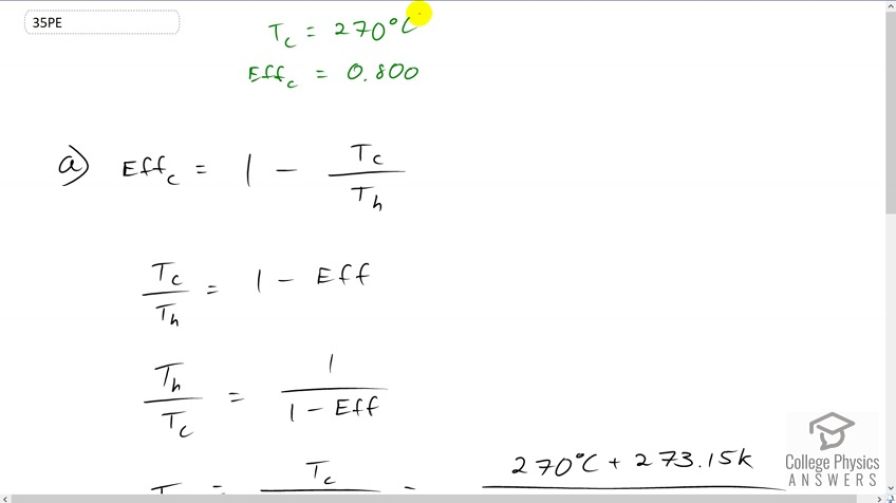 35PE
T_c = 270°C
Eff_c = 0.800
a) Eff_c = 1 - T_c / T_h
T_c / T_h = 1 - Eff
T_h / T_c = 1 / (1 - Eff)
T_c = 270°C + 273.15k
College Physics
ANSWERS